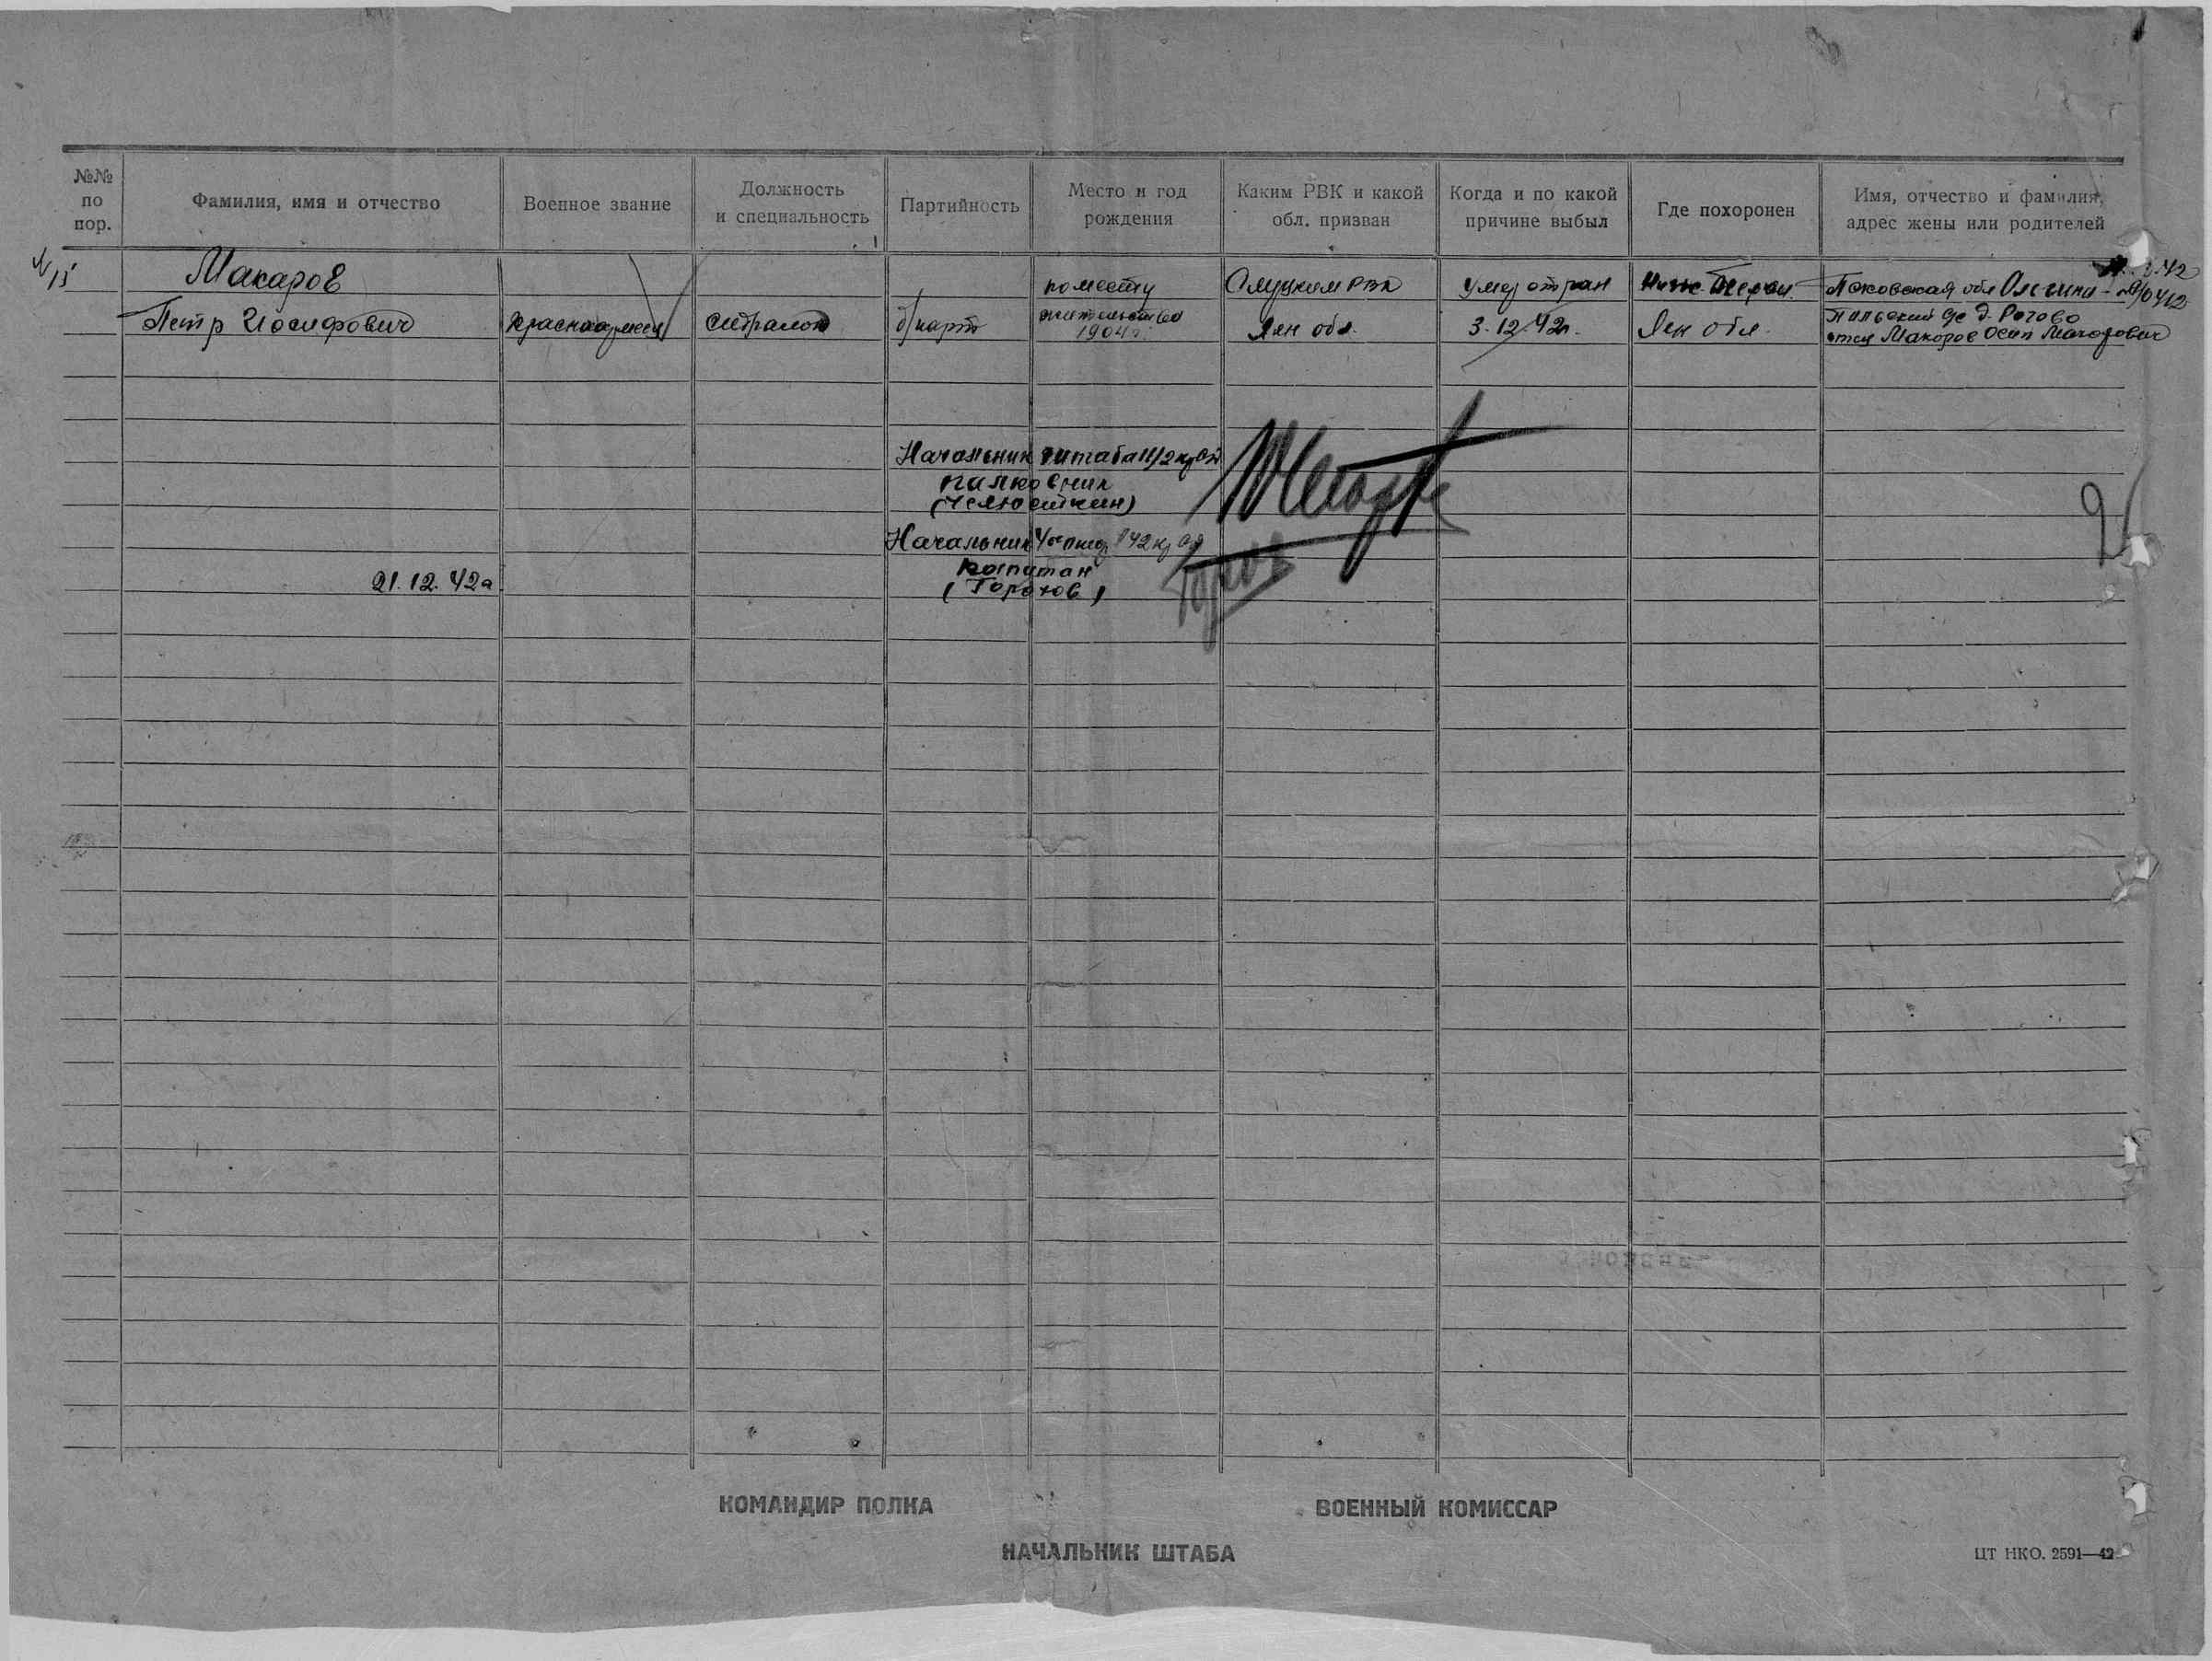 №№ по пор.
Фамилия, имя и отчество
Военное звание
Должность и специальность
Партийность
Место и год рождения
Каким РВК и какой обл. призван
Когда и по какой причине выбыл
Где похоронен
Имя, отчество и фамилия, адрес жены или родителей
Макаров
Петр Иосифович
красноармеец
б/парт
по месту
жительства
1904 г.
Слуцким РВК
Лен обл.
умер от ран
3.12.42г.
Лен обл.
Псковская обл
д. Рогово
отец Макаров Осип
Начальник штаба
полковник
(Челюсткин)
Начальник
капитан
(Горохов)
21.12.42г
КОМАНДИР ПОЛКА
ВОЕННЫЙ КОМИССАР
НАЧАЛЬНИК ШТАБА
ЦТ НКО. 2591—42